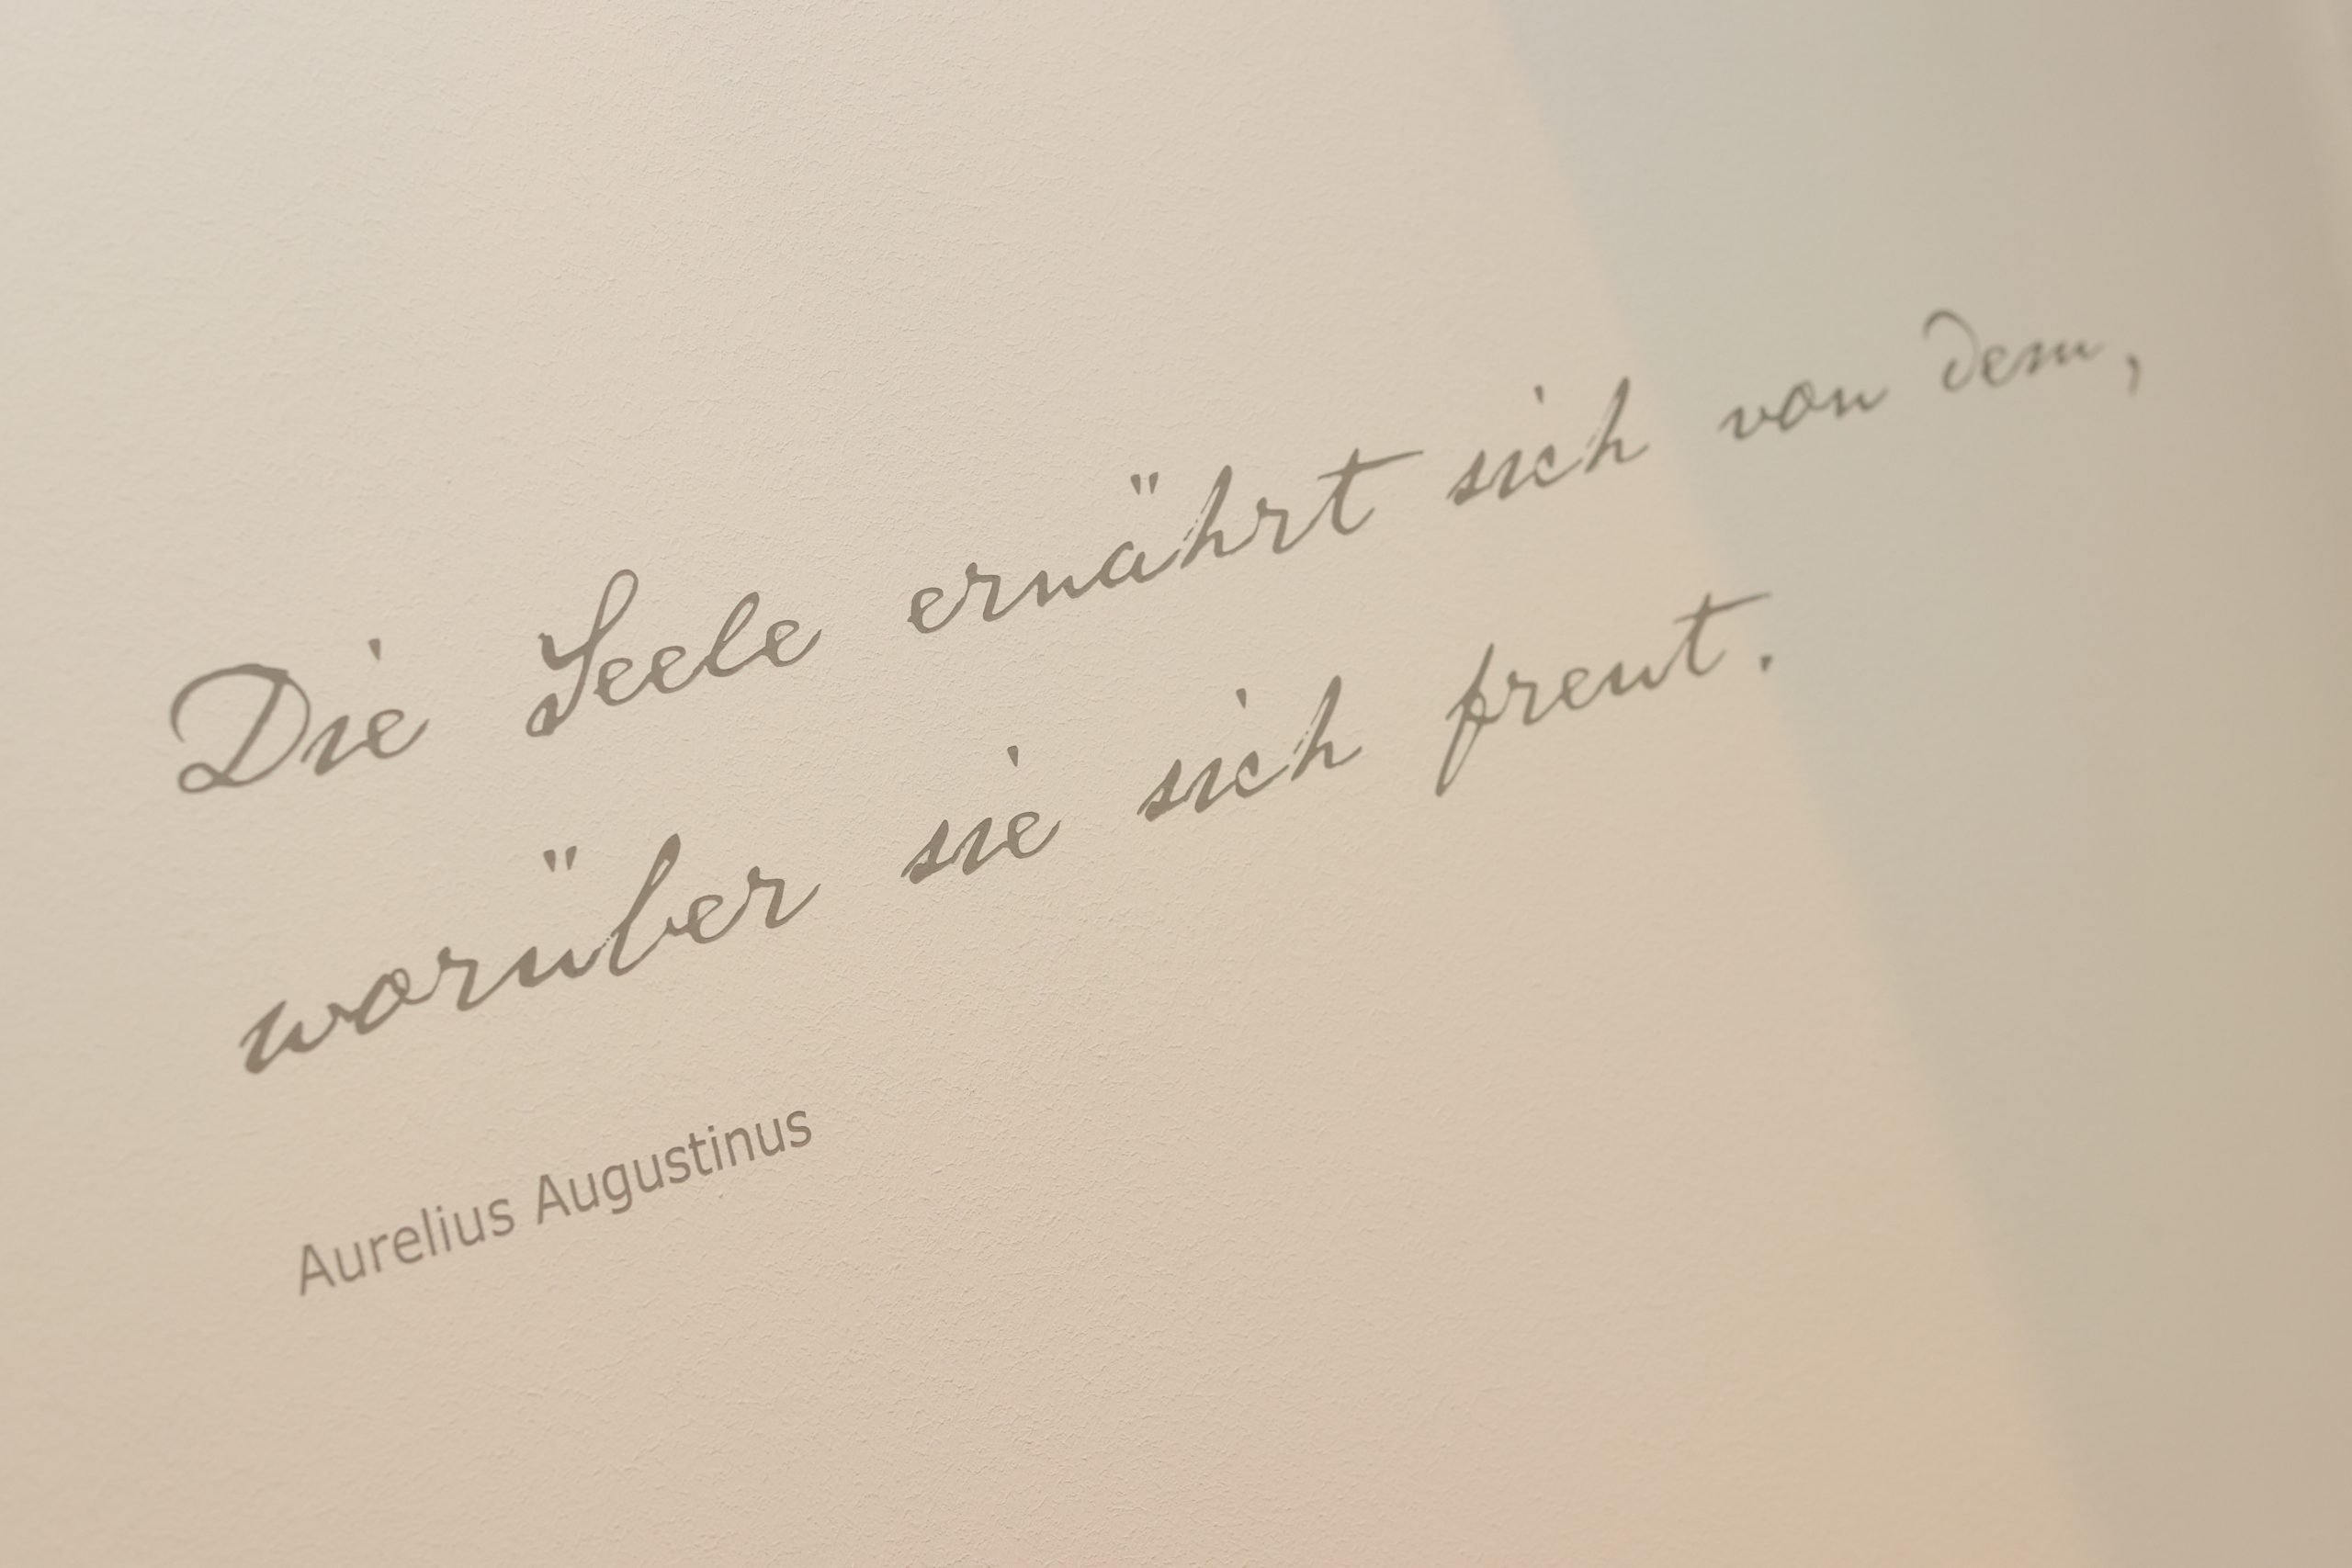 Die Seele ernährt sich von dem,
worüber sie sich freut.
Aurelius Augustinus